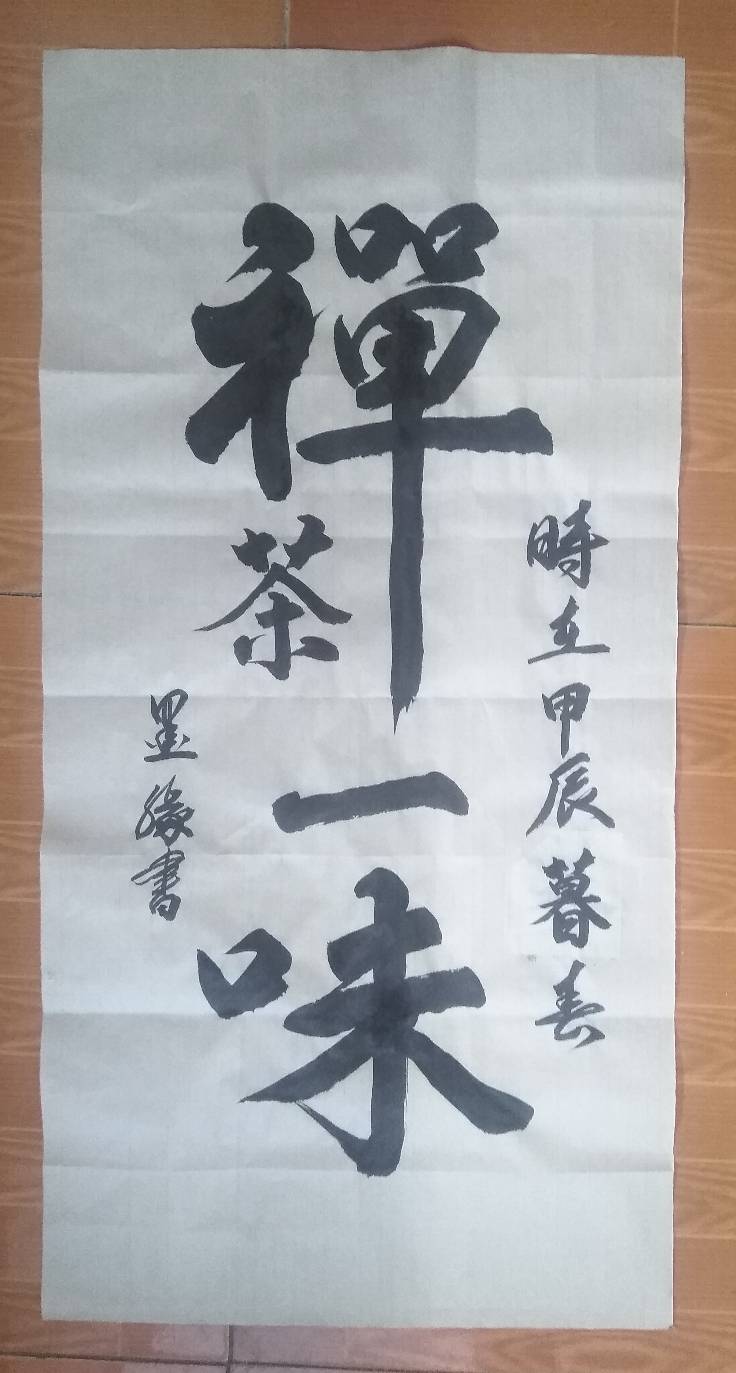 禪茶一味
時在甲辰暮春
墨緣書